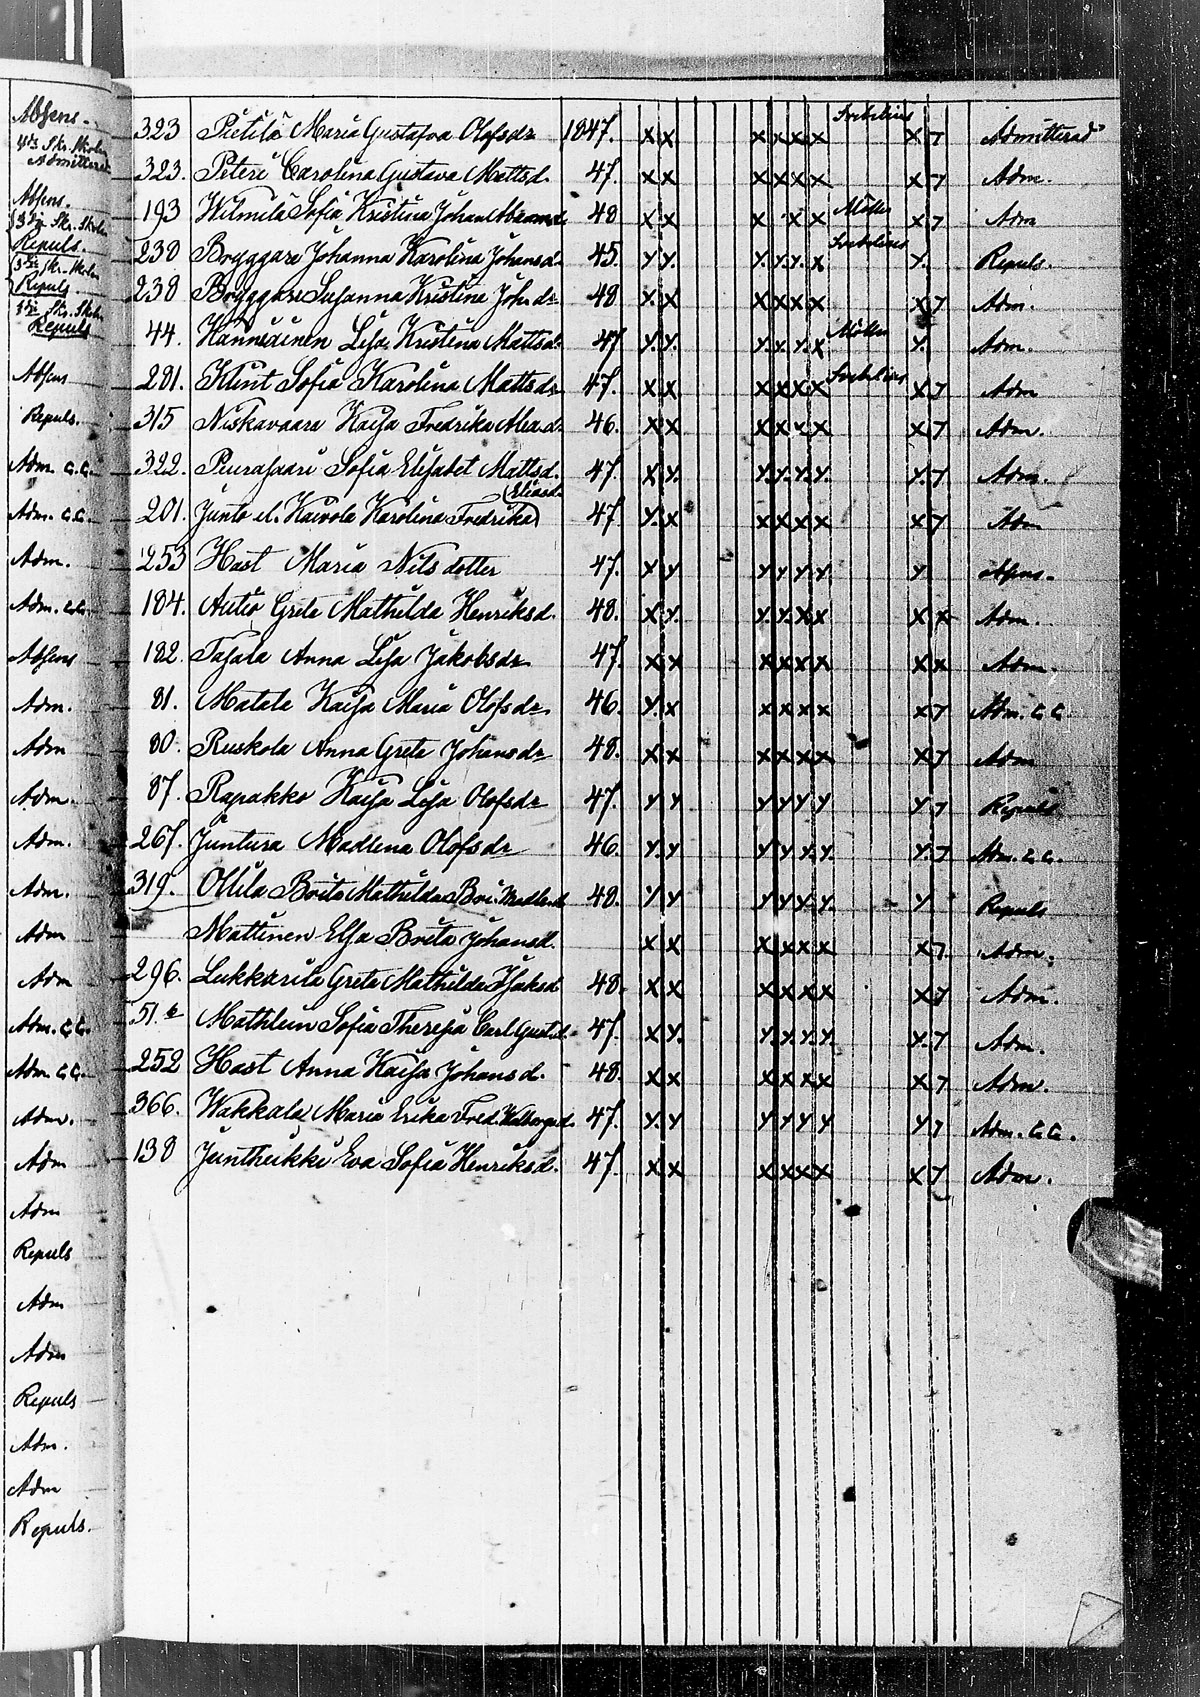 Absens.
Admitterad
Absens.
Repuls.
Repuls
Repuls
Absens
Repuls.
Adm. C.C.
Adm. C.C.
Adm.
Adm. C.C.
Absens
Adm.
Adm
Adm.
Adm.
Adm.
Adm
Adm
Adm. C.C.
Adm. C.C.
Adm.
Adm
Adm
Repuls
Adm
Adm
Repuls
Adm.
Adm
Repuls.
323 Pietilä Maria Gustafva Olofsdr 1847. x x x x x x x 7 Admitterad
323. Peteri Carolina Gustava Mattsd. 47. x x x x x x x 7 Adm.
193 Wilmilä Sofia Kristina Johan 48 x x x x x x Möller x 7 Adm
238 Brygggare Johanna Karolina Johansd. 45. y. y. y. y. y. x y. Repuls.
238 Brygggare Susanna Kristina Joh. dr 48 x x x x x x x 7 Adm.
44. Hanneainen Lisa Kristina Mattsd. 47 y. y. y. y. y. x Möller y. Adm.
281. Klint Sofia Karolina Mattsdr 47. x x x x x x x 7 Adm
315 Niskavaara Kaisa Fredrika 46. x x x x x x x 7 Adm.
322. Peurasaari Sofia Elisabet Mattsd. 47. x y. y. y. y. y. y. 7 Adm.
Eliasd.
201. Junto el. Kaivola Karolina Fredrika 47. y. x x x x x x 7 Adm
253 Hast Maria Nils dotter 47. y y y y y y y Absens.
184. Autio Greta Mathilda Henriksd. 48. x y. y. y. x x x x Adm.
182. Tapala Anna Lisa Jakobsdr 47. x x x x x x x x Adm.
81. Matala Kaisa Maria Olofsdr 46. y. x x x x x x 7 Adm. C.C.
80. Ruskola Anna Greta Johansdr 48. x x x x x x x 7 Adm
87. Rapakko Kaisa Lisa Olofsdr 47. y y y y y y y 7 Repuls
267. Juntura Madlena Olofsdr 46. y. y y y y. y. y. 7 Adm. C.C.
319. Ollila Brita Mathilda 48. y y y y y y. y Repuls
Mattinen Elsa Brita Johansd. x x x x x x x 7 Adm.
296. Lukkarila Greta Mathilda Isaksd 48. x x x x x x x 7 Adm.
51. Mathlein Sofia Theresia Carl Gust.d. 47. x y. y. y. y. y. y. 7 Adm.
252 Hast Anna Kaisa Johansd. 48. x x x x x x x 7 Adm.
366. Wakkala Maria Erika Fred. 47. y. y y y y y y 7 Adm. C.C.
138 Juntheikki Eva Sofia Henriksd. 47. x x x x x x x 7 Adm.